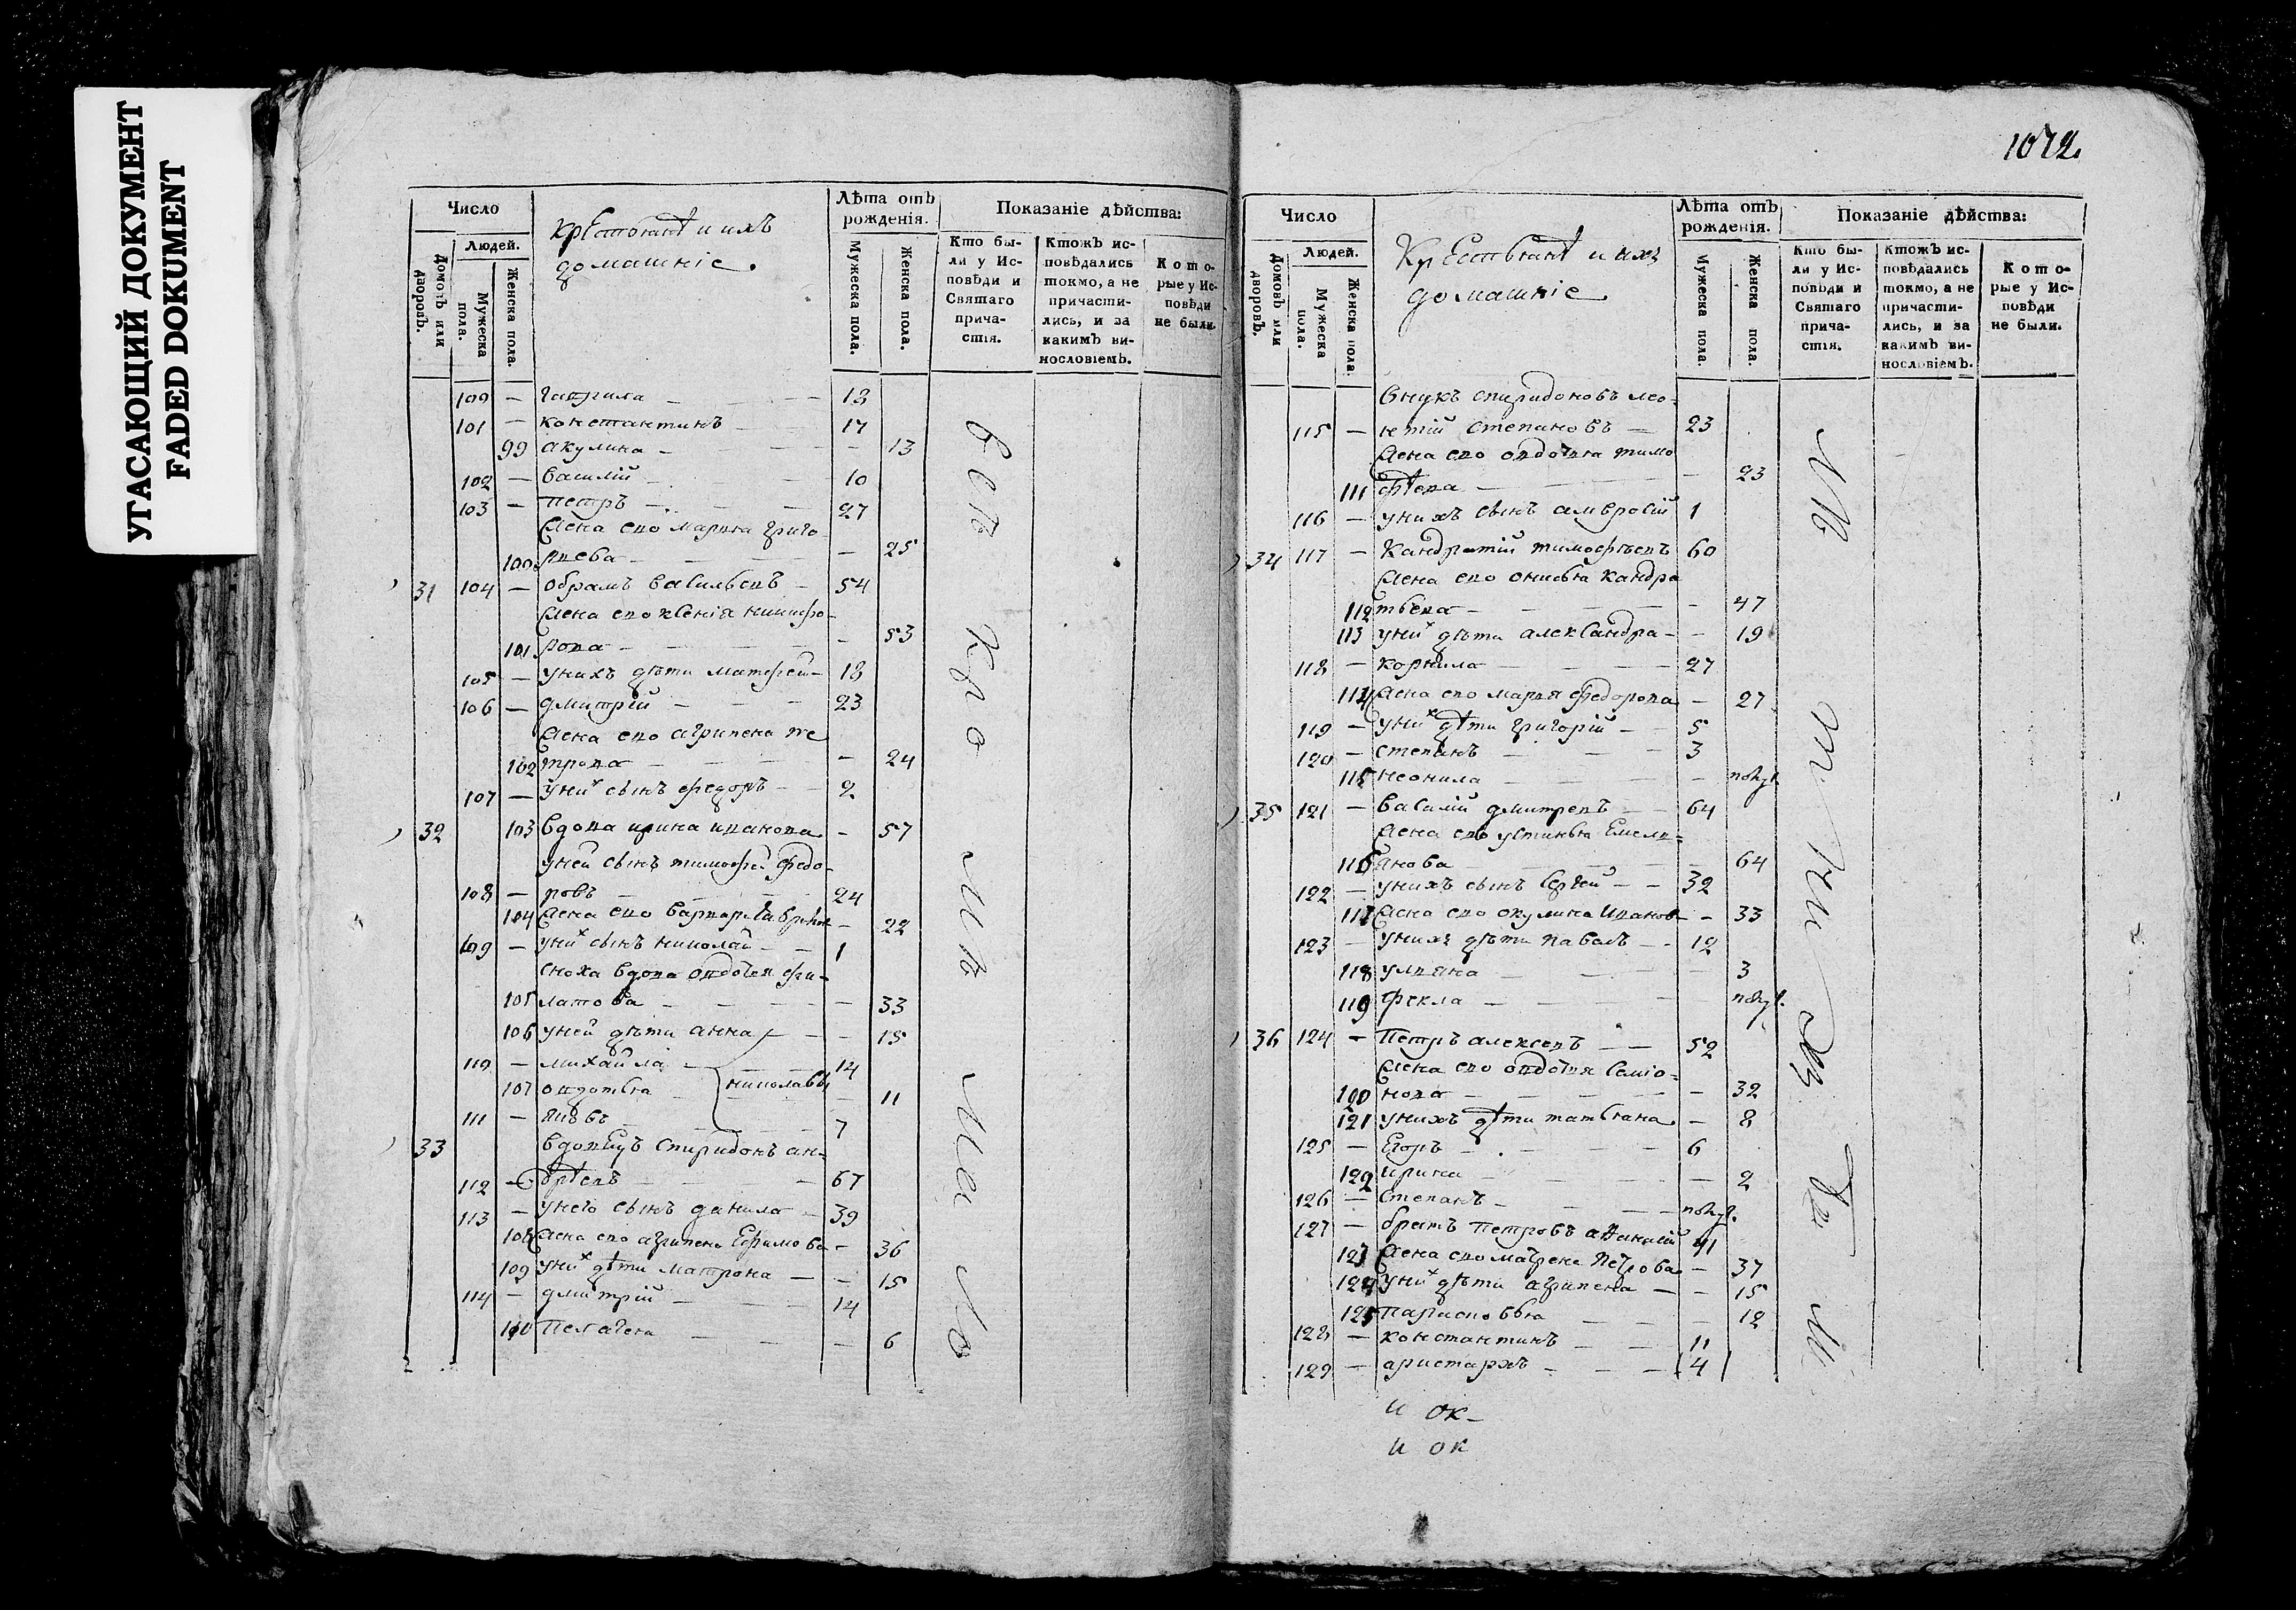 УГАСАЮЩИЙ ДОКУМЕНТ
FADED DOKUMENT
Число
Людей.
Домовъ или дворовъ.
Мужеска пола.
Женска пола.
крестьянѣ и ихъ
домашніе.
Лѣта отъ рожденія.
Мужеска пола.
Женска пола.
Показаніе дѣйства:
Кто бы-
ли у Ис-
повѣди и
Святаго
прича-
стія.
Ктожъ ис-
повѣдались
токмо, а не
причасти-
лись, и за
какимъ ви-
нословіемъ.
Кото-
рые у Ис-
повѣди
не были.
109 — гаврила — 18
101 — константинъ — 17
99 акулина — 13
102 — василій — 10
103 — петръ — 27
жена ево марья григо
100 рьева — 25
31 104 — обрамъ васильевъ — 54
жена ево ксенія никифо-
101 рова — 53
105 — унихъ дѣти матфей — 18
106 — дмитрій — 23
жена ево агрипена пе
102 трова — 24
107 — уних сынъ федоръ — 2
32 103 вдова ирина иванова — 57
уней сынъ тимофей федо-
108 — ровъ — 24
104 жена ево варвара гаврилов — 22
109 — уних сынъ николай — 1
сноха вдова овдотья фи-
105 латова — 33
106 уней дѣти анна — 15
110 — михайла — 14
107 овдотья — николавы — 11
111 — яковъ — 7
33 вдовецъ спиридонъ ан-
112 — дрѣевъ — 67
113 — унего сынъ данила — 39
108 жена ево агрипена Ефимова — 36
109 уних дѣти матрона — 15
114 — дмитрій — 14
110 пелагея — 6
1072.
Число
Людей.
Домовъ или дворовъ.
Мужеска пола.
Женска пола.
Крестьянѣ и ихъ
домашніе
Лѣта отъ рожденія.
Мужеска пола.
Женска пола.
Показаніе дѣйства:
Кто бы-
ли у Ис-
повѣди и
Святаго
прича-
стія.
Ктожъ ис-
повѣдались
токмо, а не
причасти-
лись, и за
какимъ ви-
нословіемъ.
Кото-
рые у Ис-
повѣди
не были.
внукъ спиридоновъ лео-
115 — нтій степановъ — 23
жена ево овдотья тимо
111 фѣева — 23
116 — унихъ сынъ амвросій 1
34 117 — Кандратій тимофѣевъ 60
жена ево онисья кандра
112 тьева — 47
113 уних дѣти александра — 19
118 — корнила — 27
114 жена ево марья федорова — 27
119 — уних дѣти григорій — 5
120 — степанъ — 3
115 неонила — полуг.
35 121 — василій дмитревъ — 64
жена ево устинья Емель-
116 янова — 64
122 — унихъ сынъ сергей — 32
117 жена ево окулина Иванов — 33
123 — унихъ дѣти павелъ — 12
118 ульяна — 3
119 фекла — полуг.
36 124 — Петръ алексевъ — 52
жена ево овдотья семіо-
120 нова — 32
121 унихъ дѣти татьяна — 8
125 — Егоръ — 6
122 ирина — 2
126 — степанъ — полуг.
127 — братъ петровъ афанасій 41
123 жена ево матрена Петрова — 37
124 уних дѣти агрипена — 15
125 парасковья — 12
128 — константинъ — 11
129 — аристархъ — 4
и ок-
и ок